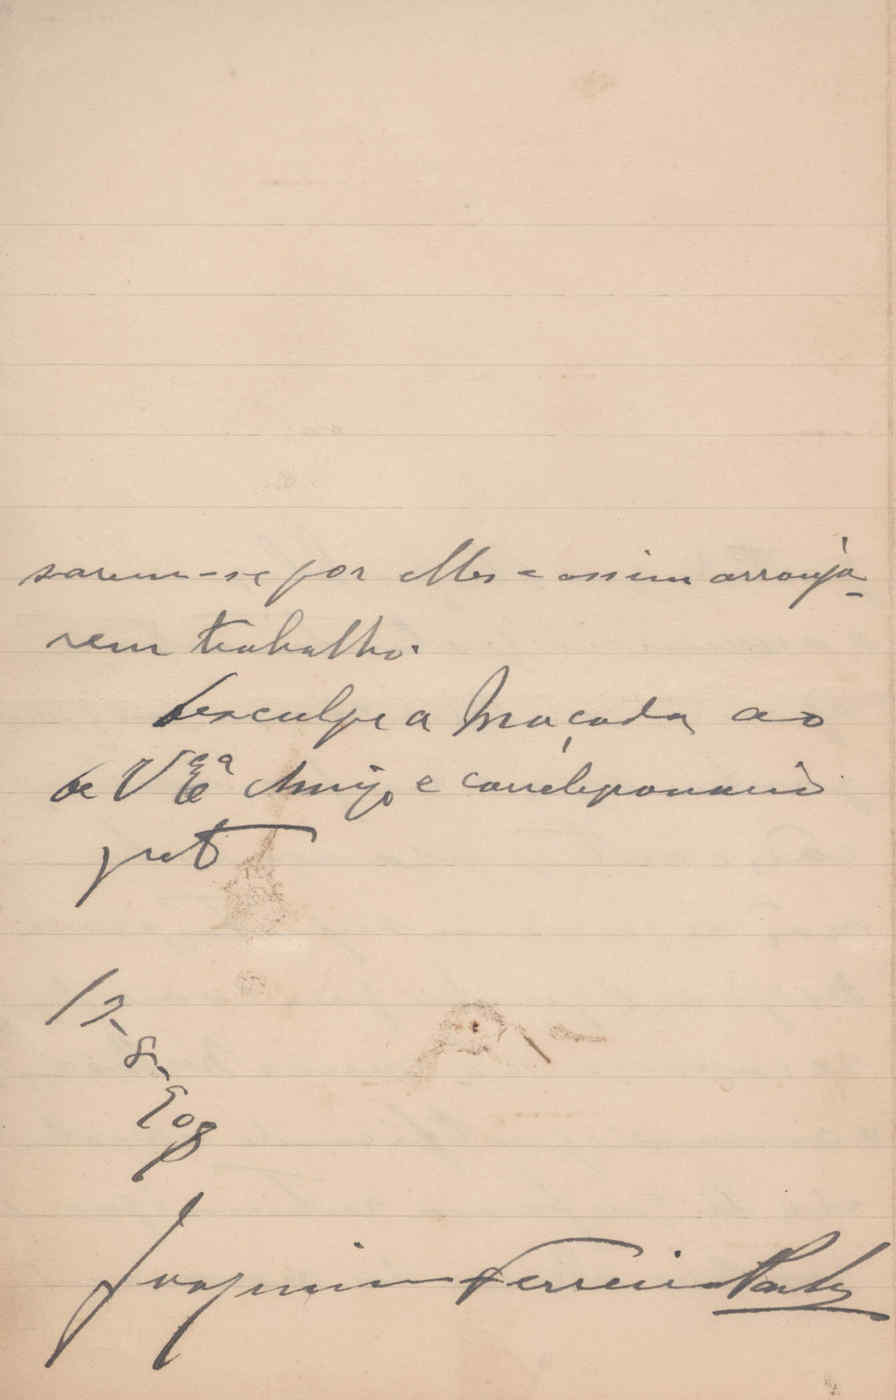 sarem-se por elles e assim arranja-
rem trabalho.
Desculpe a Maçada ao
de V Exª Amigo e correligionario
grato
17-8-908
Joaquim Ferreira